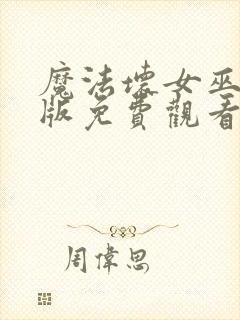 魔法壞女巫
版免費觀看
周偉思